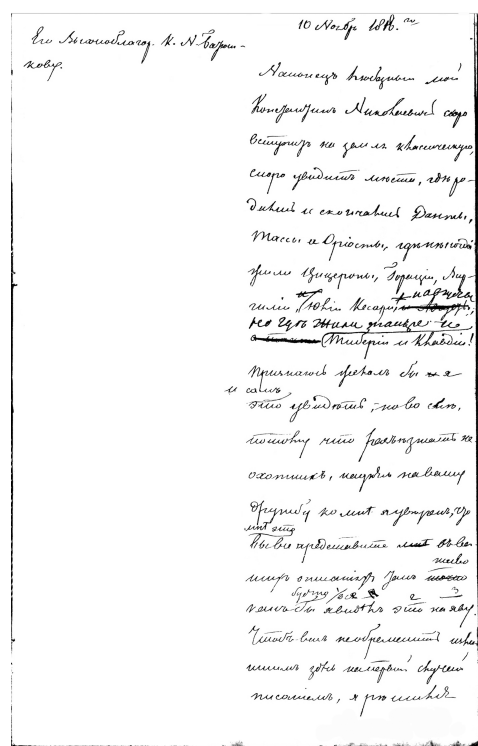 10 Ноябр. 1818. го
Его Высокоблагор. К. Н. Батюш-
кову.
Наконецъ любезный мой
Константинъ Николаевичъ скоро
вступитъ на землю классическую,
скоро увидитъ места, где ро-
дились и скончались Данты,
Тассы и Аріосты, где
жили Цицероны, Гораціи, Вир-
гиліи, Юліи Кесари,
но где жили также и
Тиберіи и Клавдіи!
Признаюсь желалъ бы я
и самъ
это увидеть,
потому что разъезжать не
охотникъ, надеясь на вашу
дружбу ко мне я уверенъ, что
мне это
Вы все представите въ ва-
живо
шихъ описаніяхъ такъ
будто бы я
2 3
видел это на яву.
Чтобъ васъ не обременить
здесь на первый случай
писаніемъ, я решился